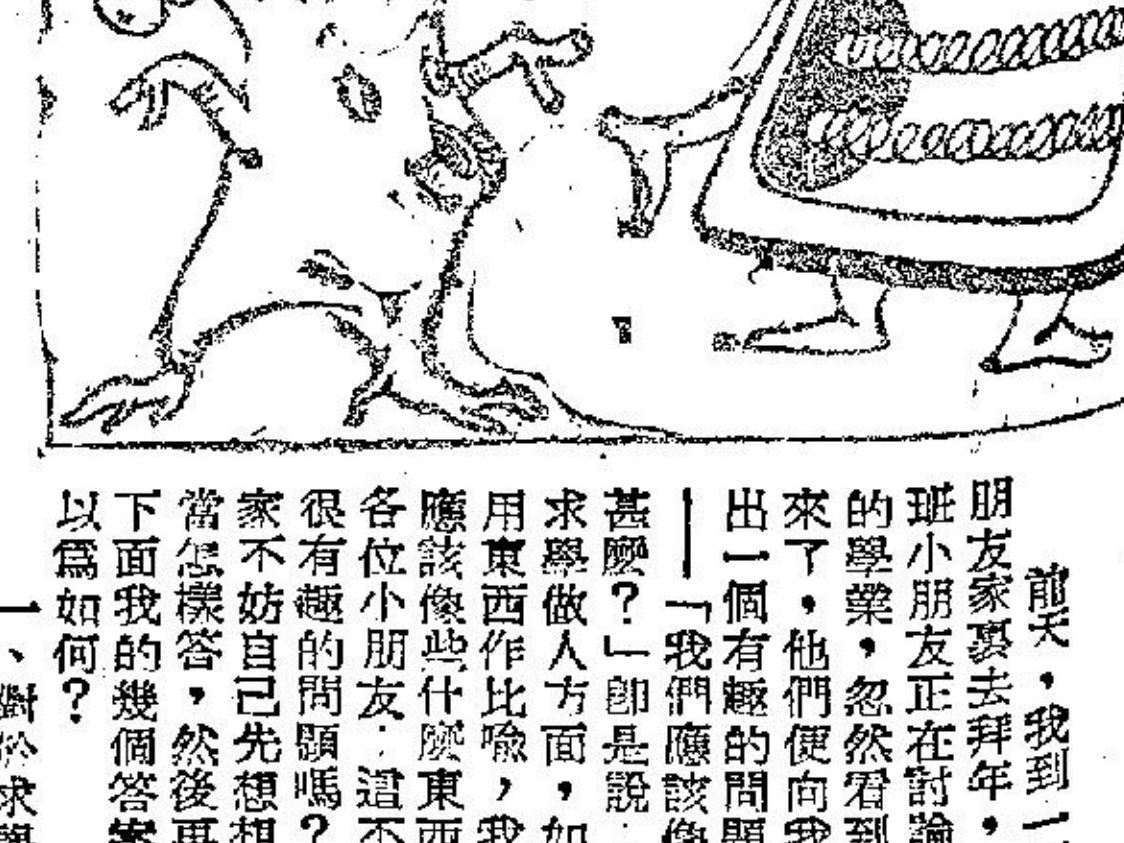 前天，我到一
朋友家裏去拜年，
班小朋友正在討論
的學業，忽然看到
來了，他們便向我
出一個有趣的問題
——「我們應該像
甚麼？」卽是說
求學做人方面，如
用東西作比喻，我
應該像些什麼東西
各位小朋友：這不
很有趣的問題嗎？
家不妨自己先想想
當怎樣答，然後再
下面我的幾個答案
以爲如何？
一、對於求學